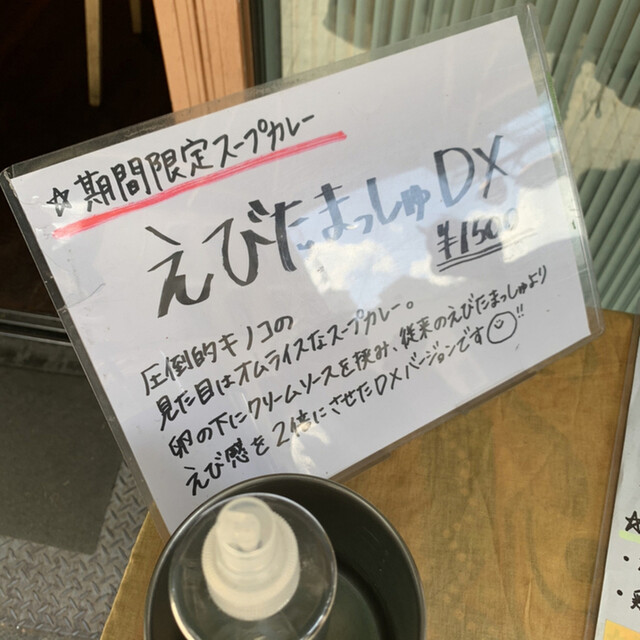 ☆期間限定スープカレー
えびたまっしゅDX
¥1500
圧倒的キノコの
見た目はオムライスなスープカレー。
卵の下にクリームソースを挟み、従来のえびたまっしゅより
えび感を2倍にさせたDXバージョンです☺!!